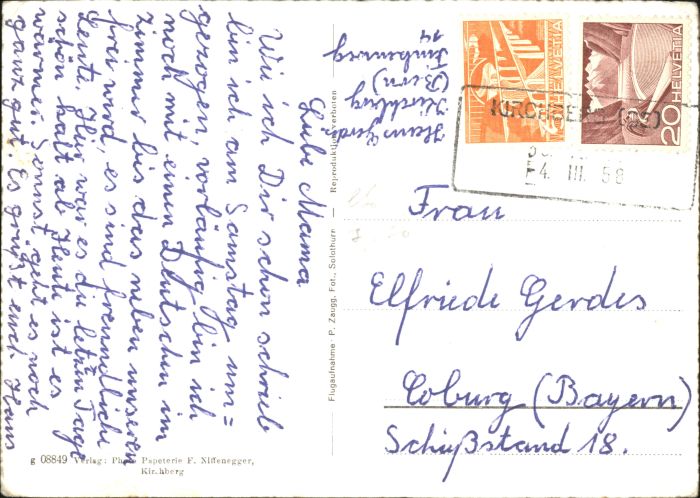 Liebe Mama
Wie ich Dir schon schrieb
bin ich am Samstag um=
gezogen, vorläufig bin ich
noch mit einen Deutschen im
zimmer bis das neben unseren
frei wird, es sind freundliche
Leute. Hir war es die letzten Tage
schön kalt ab Heute ist es
wärmer. Sonnst geht es noch
ganz gut. Es grüsst euch Hans
Hans Gerdes
Kirchberg
(Bern)
14
HELVETIA
20 HELVETIA
KIRCHBERG (BE)
4. III. 58
Frau
Elfriede Gerdes
Coburg (Bayern)
Schißstand 18.
Flugaufnahme · P. Zaugg. Fot., Solothurn — Reproduktion verboten
g 08849 Verlag: Photo Papeterie F. Niffenegger,
Kirchberg